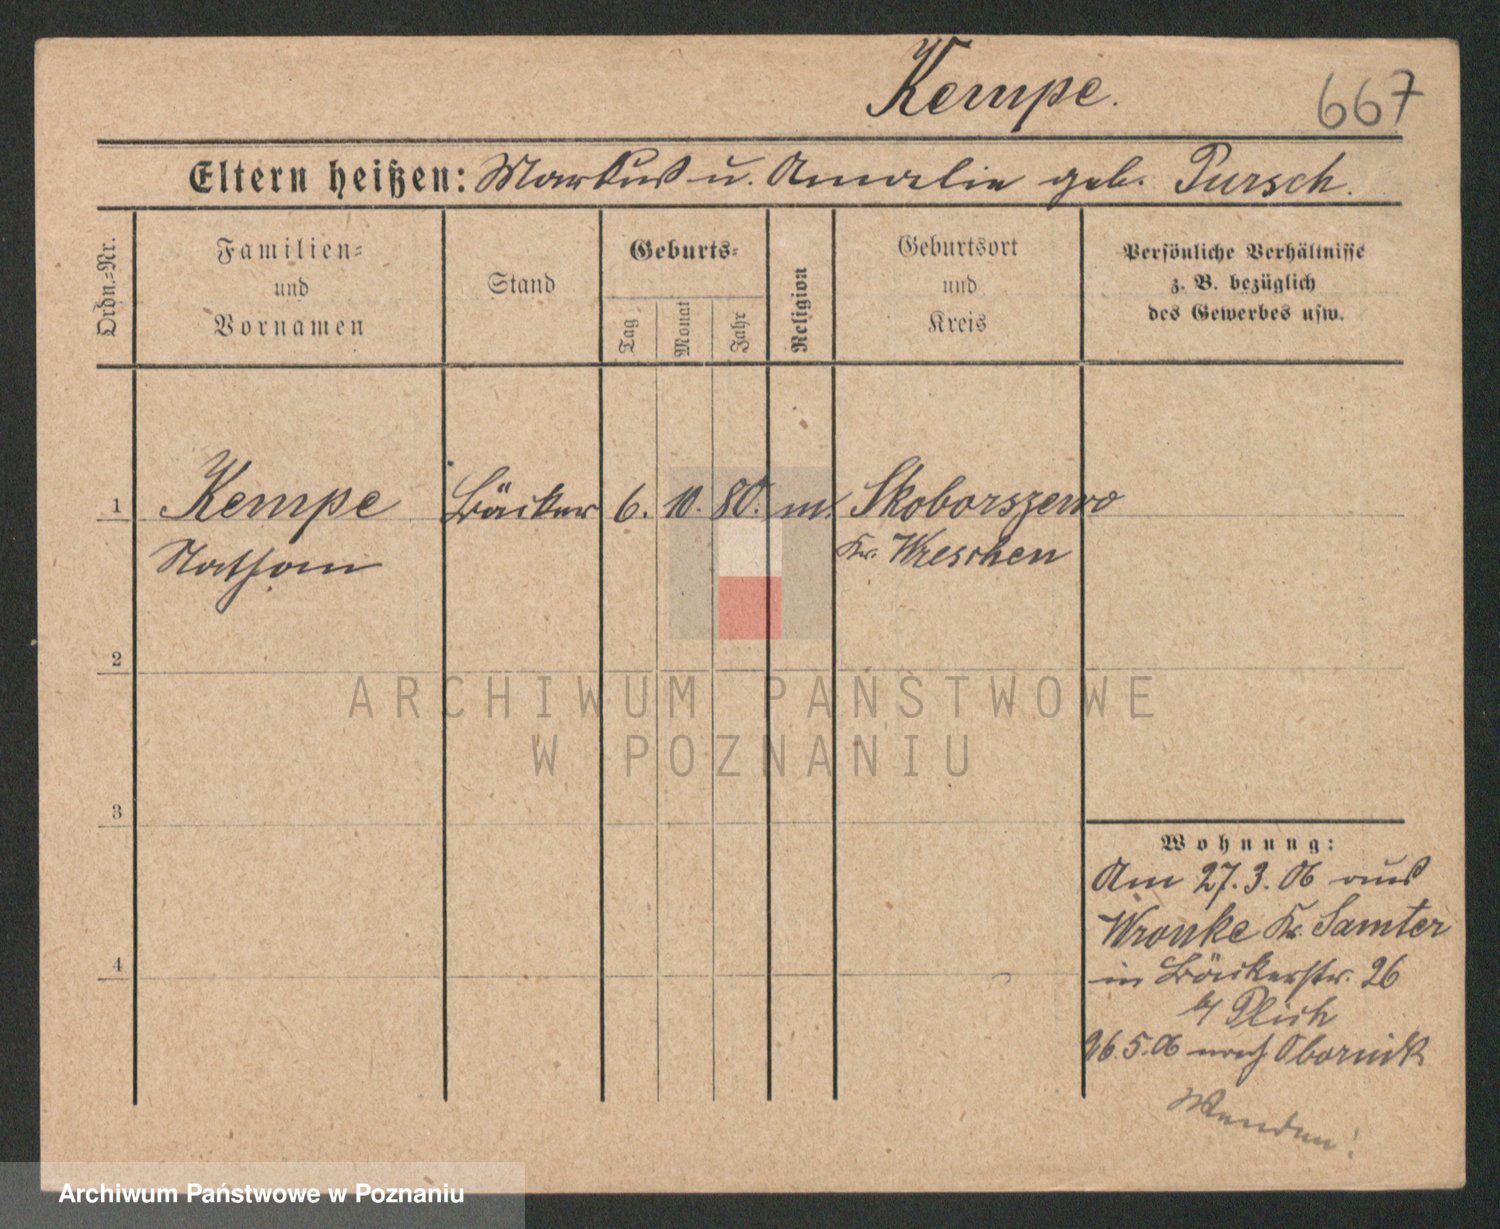 Kempe.
667
Eltern heißen: Markus u. Amalie geb. Pursch.
Ordn.-Nr.
Familien-
und
Vornamen
Stand
Geburts-
Tag
Monat
Jahr
Religion
Geburtsort
und
Kreis
Persönliche Verhältnisse
z. B. bezüglich
des Gewerbes usw.
1
Kempe Bäcker 6. 10. 80. m. Skoborszewo
Nathan Kr. Wreschen
2
ARCHIWUM PAŃSTWOWE
W POZNANIU
3
Wohnung:
Am 27.3.06 aus
Wronke Kr. Samter
4
in Bäckerstr. 26
b/ Plich
26.5.06 nach Obornik
Wenden!
Archiwum Państwowe w Poznaniu